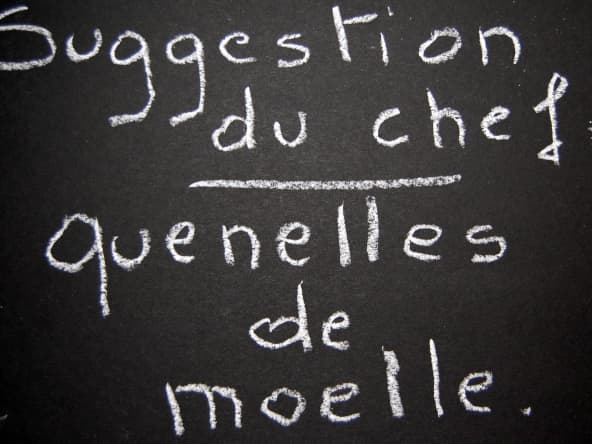 Suggestion
du chef
quenelles
de
moelle.